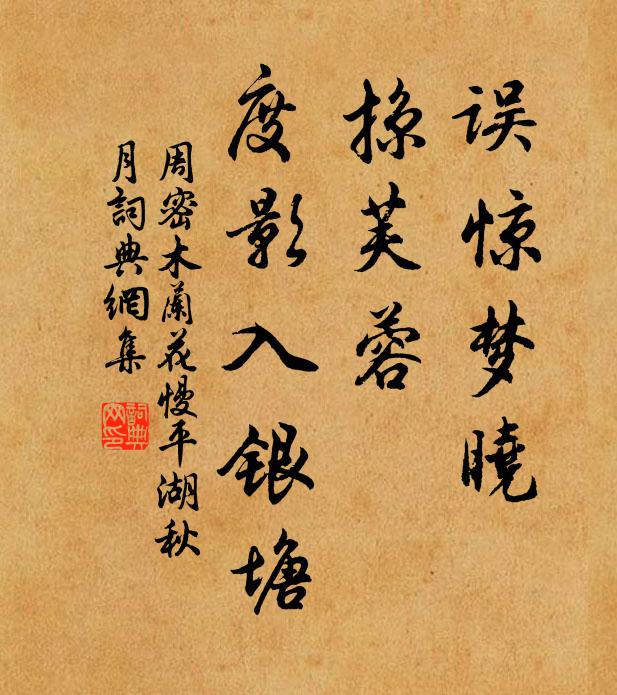 误惊梦晓
掠芙蓉
度影入银塘
周密木蘭花慢平湖秋
月詞典網集
詞典
网印